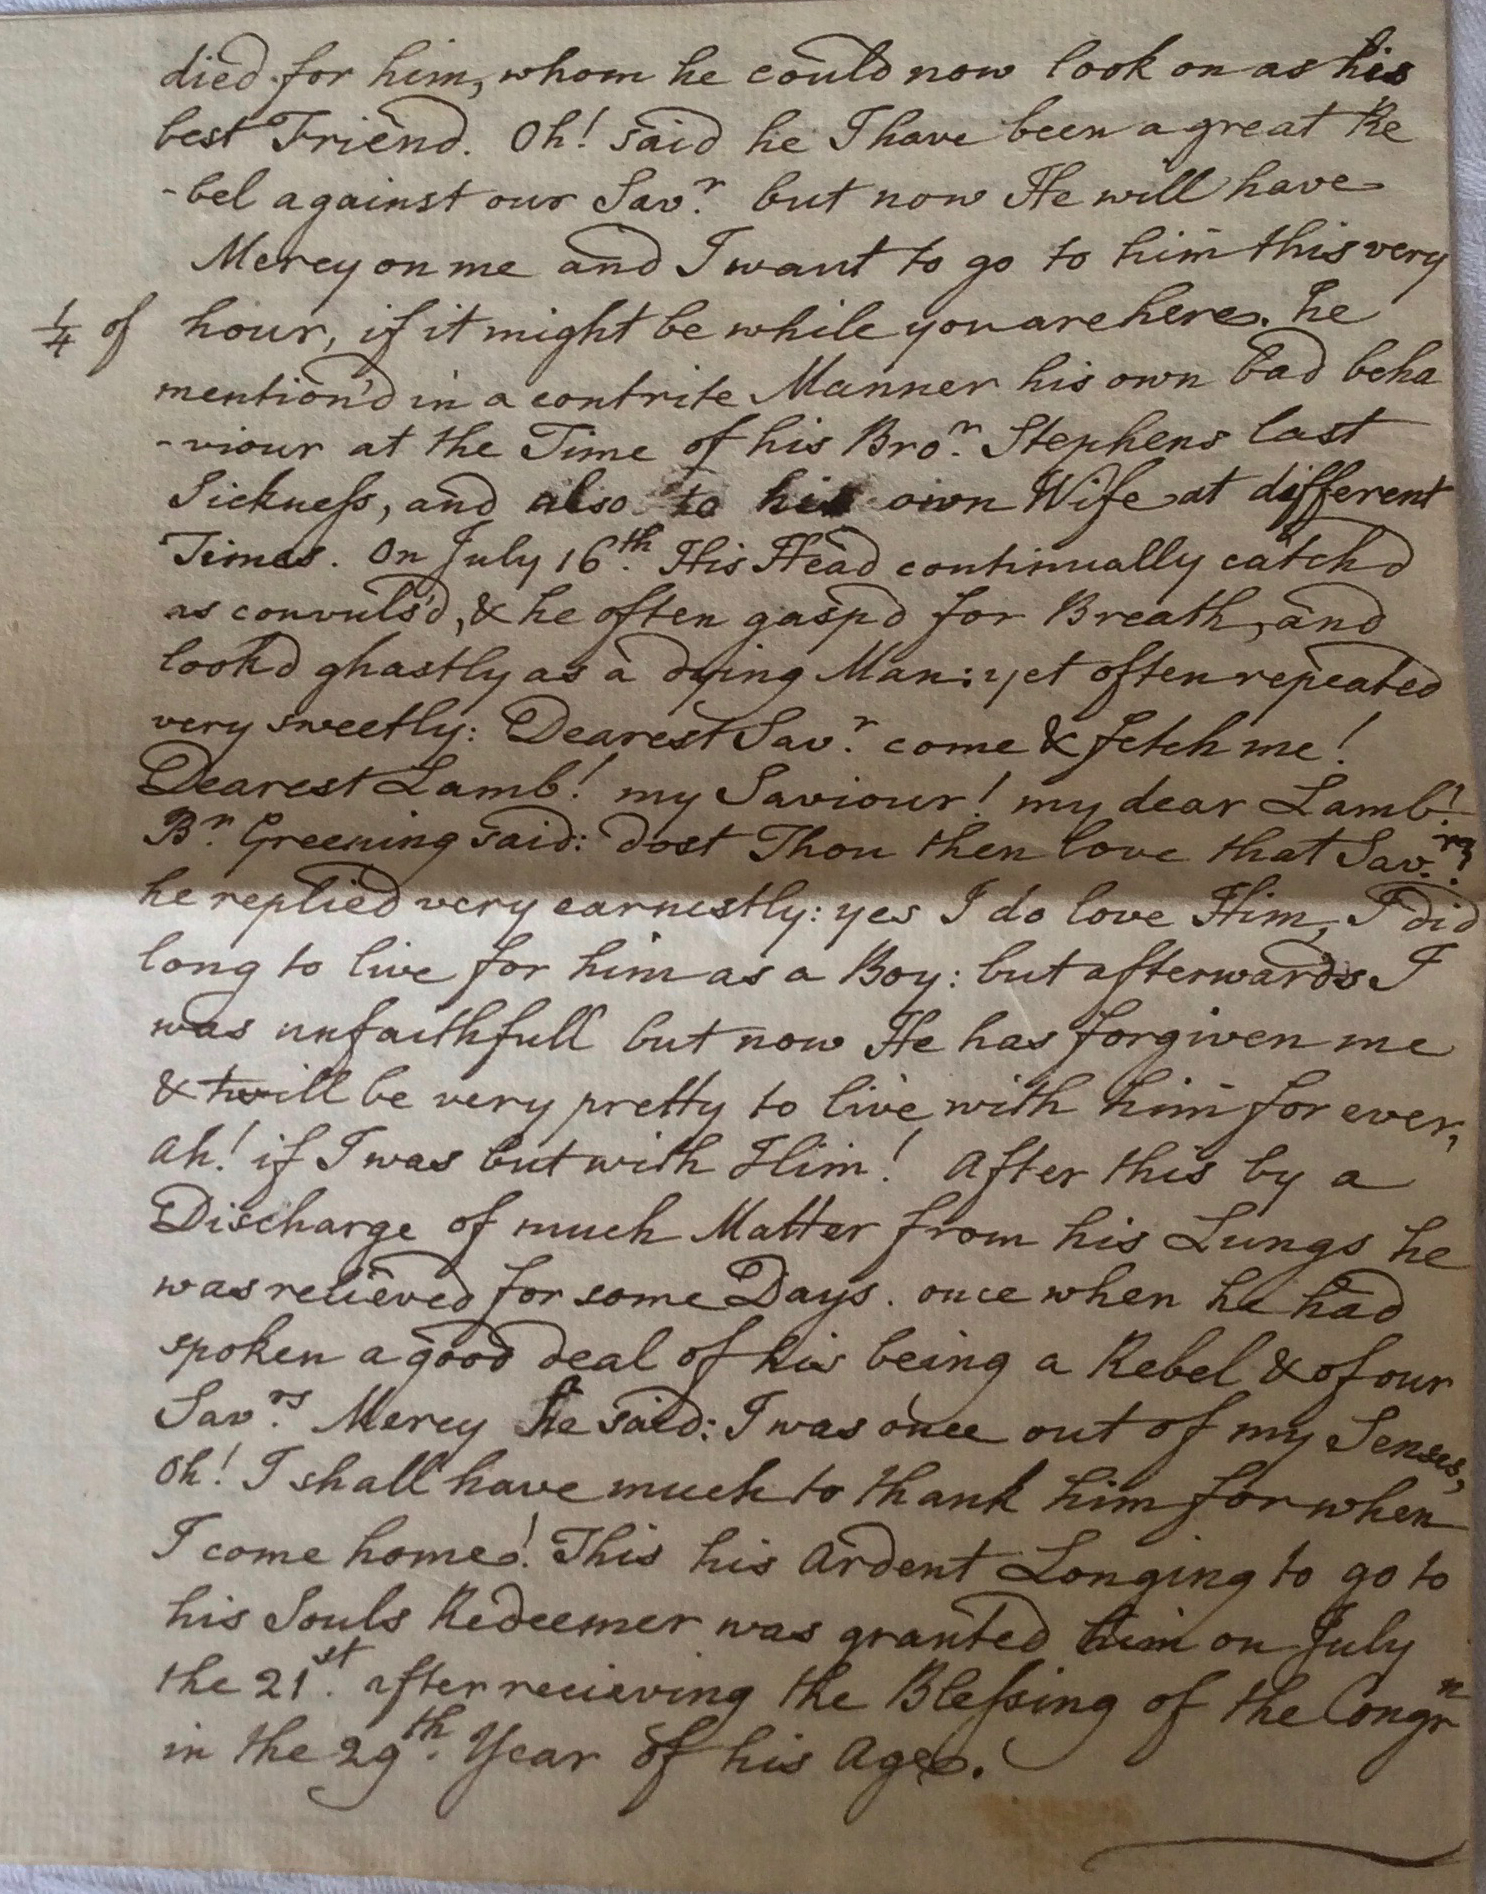 died for him, whom he could now look on as his
best Friend. Oh! said he I have been a great Re
-bel against our Savr. but now He will have
Mercy on me and I want to go to him this very
1/4 of hour, if it might be while you are here. he
mention'd in a contrite Manner his own bad beha
-viour at the Time of his Bror. Stephens last
Sickness, and also to his own Wife at different
Times. On July 16th. His Head continually catch'd
as convuls'd, & he often gasp'd for Breath, and
look'd ghastly as a dying Man: yet often repeated
very sweetly: Dearest Savr. come & fetch me!
Dearest Lamb! my Saviour! my dear Lamb!
Br. Greening said: dost Thou then love that Savr.?
he replied very earnestly: yes I do love Him, I did
long to live for him as a Boy: but afterwards I
was unfaithfull but now He has forgiven me
& twill be very pretty to live with him for ever,
Ah! if I was but with Him! After this by a
Discharge of much Matter from his Lungs he
was relieved for some Days. once when he had
spoken a good deal of his being a Rebel & of our
Savrs. Mercy he said: I was once out of my Senses,
Oh! I shall have much to thank him for when
I come home! This his Ardent Longing to go to
his Souls Redeemer was granted him on July
the 21st. after recieving the Blessing of the Congrn
in the 29th. Year of his Age.